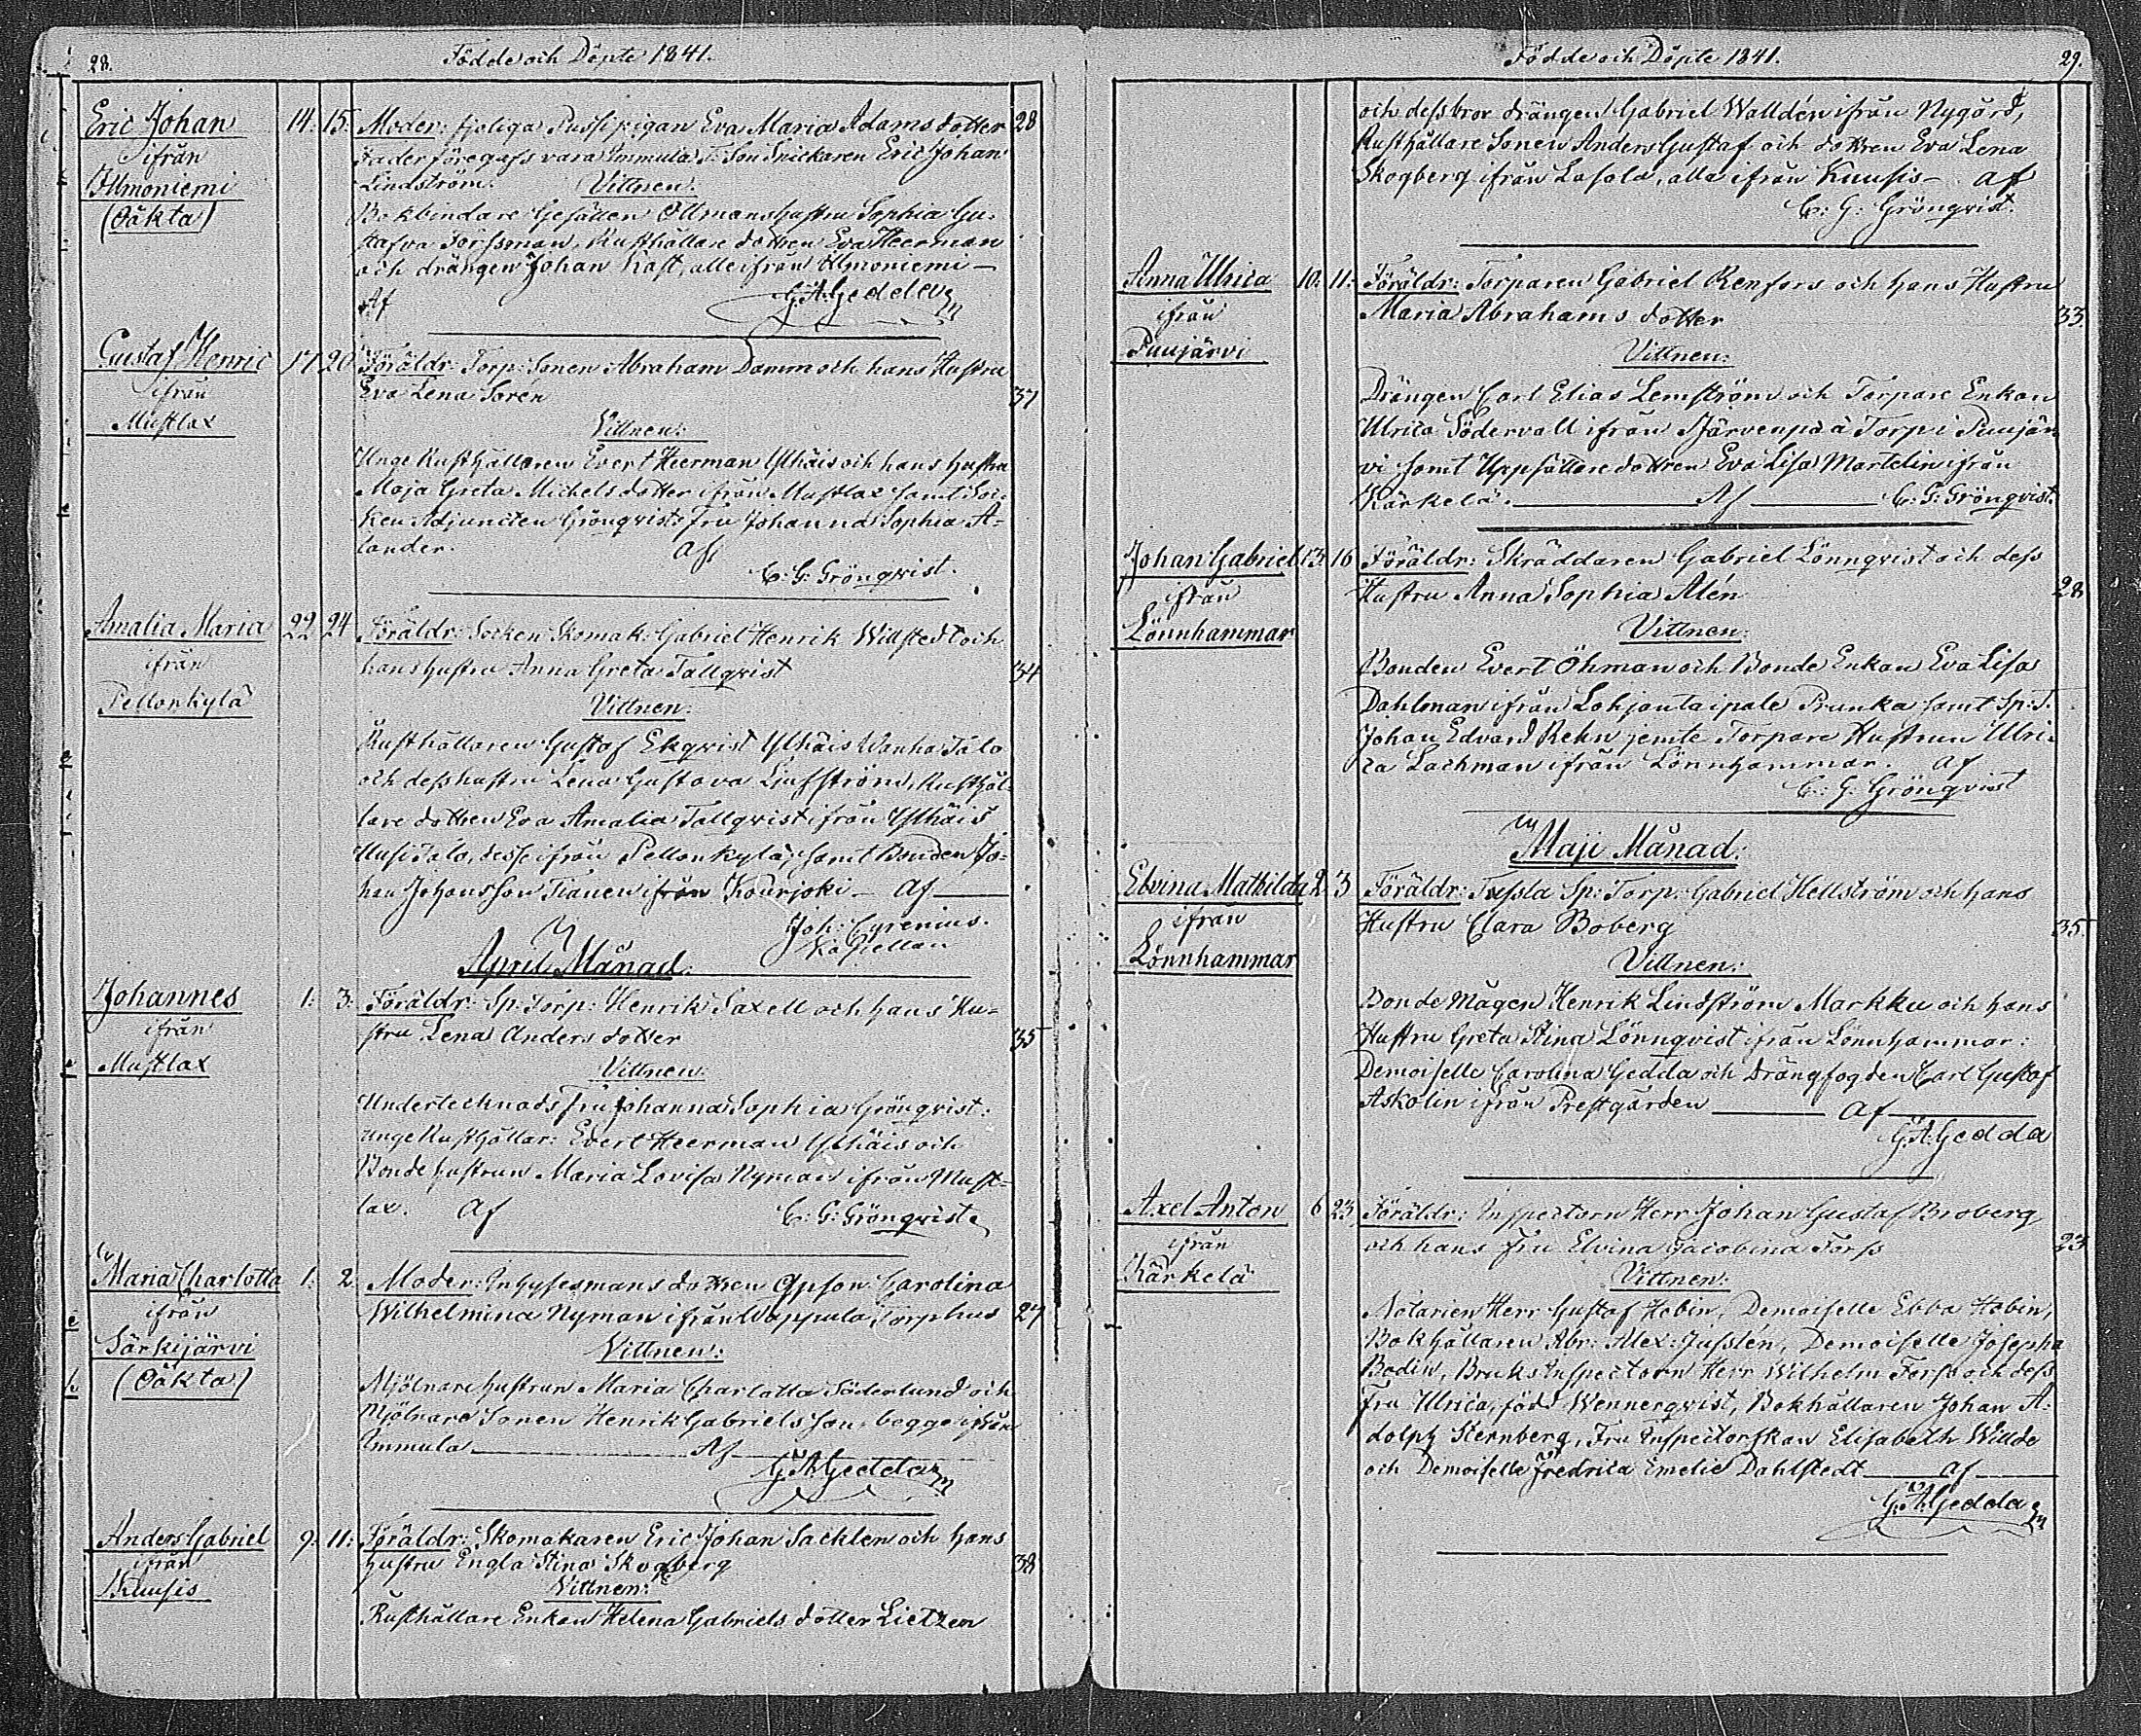 28. Födde och Döpte 1841.
Eric Johan 14. 15. Moder: Pigan Eva Maria Adams dotter 28
ifrån Fader föregafs vara Immula T. Son Snickaren Eric Johan
Illmoniemi Lindström. Vittnen:
(Oäkta) Bokbindare Gesällen Öllmans hustru Sophia Gu-
stafva Forssman, Rusthållare dottren Eva Heerman
och drängen Johan Kast, alle ifrån Illmoniemi —
Af G.A. Gedda
Gustaf Henric 17 20 Föräldr: Torp: Sonen Abraham Damm och hans Hustru
ifrån Eva Lena Sorén 37
Mustlax Vittnen:
Unge Rusthållaren Evert Heerman Ylhäis och hans hustru
Maja Greta Michels dotter ifrån Mustlax samt Soc-
ken Adjuncten Grönqvists Fru Johanna Sophia A-
lander. Af
C: G: Grönqvist.
Amalia Maria 22 24 Föräldr: Socken Skomak: Gabriel Henrik Willstedt och
ifrån hans hustru Anna Greta Tallqvist 34
Pellonkylä Vittnen:
Rusthållaren Gustaf Ekqvist Ylhäis Wanha Talo
och dess hustru Lena Gustava Liufström, Rusthål-
lare dottren Eva Amalia Tallqvist ifrån Ylhäis
Uusi Talo, desse ifrån Pellonkylä, samt Bonden Jo-
han Johansson Tianen ifrån Kourjoki — Af
Joh: Cyrenius.
Kapellan
April Månad.
Johannes 1: 3: Föräldr: Sp: Torp: Henrik Saxell och hans Hu-
ifrån stru Lena Anders dotter 35
Mustlax Vittnen:
Undertechnads Fru Johanna Sophia Grönqvist:
unge Rusthållar: Evert Heerman Ylhäis och
Bonde hustrun Maria Lovisa Nyman ifrån Must-
lax. Af C: G: Grönqvist.
Maria Charlotta 1: 2. Moder: Inhysesmans dottren Carolina
ifrån Wilhelmina Nyman ifrån Wappula Torphus 27
Särkijärvi Vittnen:
(Oäkta) Mjölnare hustrun Maria Charlotta Söderlund och
Mjölnare Sonen Henrik Gabriels son begge ifrån
Immula Af
G A Gedda
Anders Gabriel 9: 11: Föräldr: Skomakaren Eric Johan Sacklen och hans
ifrån hustru Engla Stina Skogberg 38
Kuusis Vittnen:
Rusthållare Enkan Helena Gabriels dotter Lietzen
Födde och Döpte 1841. 29.
och dess bror drängen Gabriel Walldén ifrån Nygård,
Rusthållare Sonen Anders Gustaf och dottren Eva Lena
Skogberg ifrån Lasola, alla ifrån Kuusis — Af
C: G: Grönqvist.
Anna Ulrica 10: 11: Föräldr: Torparen Gabriel Renfors och hans Hustru
ifrån Maria Abrahams dotter 33.
Puujärvi Vittnen:
Drängen Carl Elias Lemström och Torpare Enkan
Ulrica Södervall ifrån Järvenpää Torp i Puujär-
vi samt Uppsättare dottren Eva Lisa Martelin ifrån
Kärkelä. Af C: G: Grönqvist.
Johan Gabriel 13. 16 Föräldr: Skräddaren Gabriel Lönnqvist och dess
ifrån Hustru Anna Sophia Alén 28
Lönnhammar Vittnen:
Bonden Evert Öhman och Bonde Enkan Eva Lisa
Dahlman ifrån Lohjantaipale Prunka samt Sp: T.
Johan Edvard Rehn jemte Torpare Hustrun Ulri-
ca Lachman ifrån Lönnhammar. Af
C: G: Grönqvist
Maji Månad:
Elvina Mathilda 2 3 Föräldr: Tussla Sp: Torp: Gabriel Hellström och hans
ifrån Hustru Clara Boberg 35.
Lönnhammar Vittnen:
Bonde Mågen Henrik Lindström Markku och hans
Hustru Greta Stina Lönnqvist ifrån Lönnhammar:
Demoiselle Carolina Gedda och Drängfogden Carl Gustaf
Askolin ifrån Prestgården Af
G.A. Gedda
Axel Anton 6 23 Föräldr: Inspectorn Herr Johan Gustaf Broberg
ifrån och hans Fru Elvina Jacobina Forss 23
Kärkelä Vittnen:
Notarien Herr Gustaf Hobin, Demoiselle Ebba Hobin,
Bokhållaren Abr: Alex: Juslén, Demoiselle Josepha
Bodin, Bruks Inspectorn Herr Wilhelm Forss och dess
Fru Ulrica, född Wennerqvist, Bokhållaren Johan A-
dolph Sternberg, Fru Inspectorskan Elisabeth Willde
och Demoiselle Fredrica Emelie Dahlstedt Af
G.A. Gedda